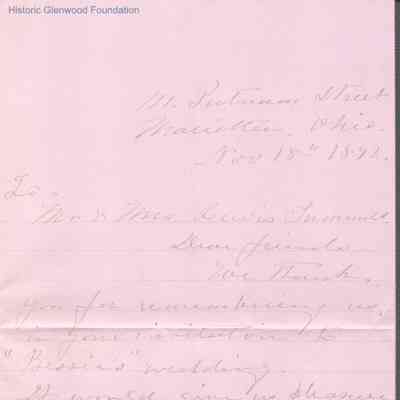 Historic Glenwood Foundation
Putnam Street
Marietta, Ohio.
Nov 18th 1892.
To.
Mr & Mrs Lewis Summers
Dear friends
We thank
you for remembering us,
in your invitation to
"Bessie's" wedding.
It would give us pleasure